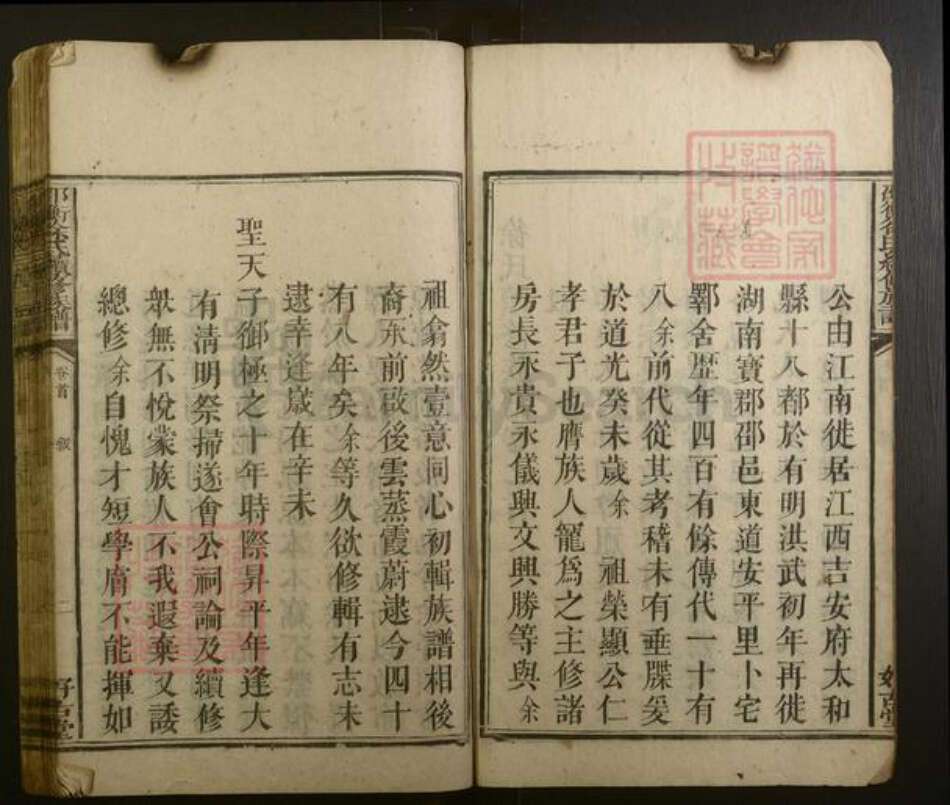 公由江南徙居江西吉安府太和
縣十八都於有明洪武初年再徙
湖南寶郡邵邑東道安平里卜宅
鄴舍歷年四百有餘傳代一十有
八余前代從其考稽未有垂牒爰
於道光癸未歲余 祖榮顯公仁
孝君子也膺族人寵為之主修諸
房長永貴永儀興文興勝等與余
祖翕然壹意同心初輯族譜相後
裔永前啟後雲蒸霞蔚逮今四十
有八年矣余等久欲修輯有志未
逮幸逢歲在辛未
聖天子御極之十年時際昇平年逢大
有清明祭掃遂會公祠論及續修
眾無不悅蒙族人不我遐棄又諉
總修余自愧才短學膚不能揮如
卷首 敘
二
好古堂